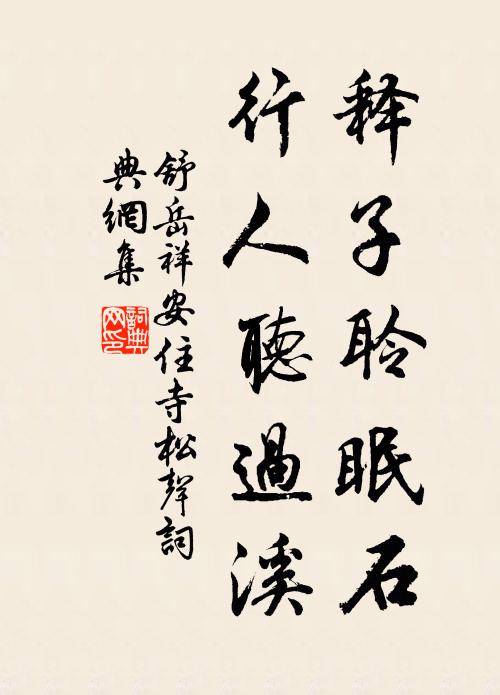 释子聆眠石
行人聽過溪
舒岳祥安住寺松聲詞
典網集
詞典
网印